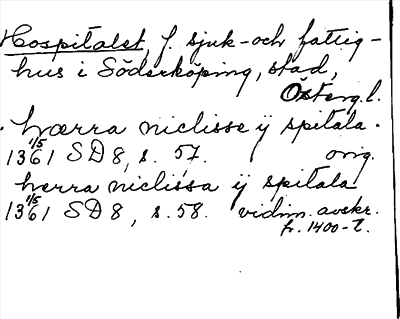 Hospitalet, f. sjuk- och fattig-
hus i Söderköping, stad,
Österg.l.
hærra niclisse ij spitala.
1361 1/5 SD 8, s. 57. orig.
herra niclissa ij spitala
1361 1/5 SD 8, s. 58. vidim. avskr.
fr. 1400-t.